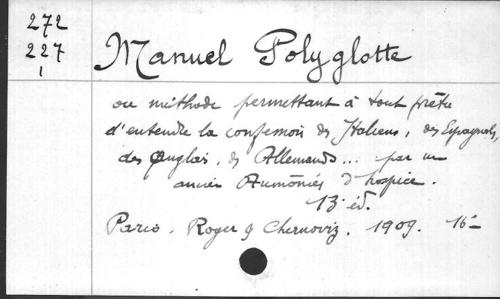 272
227
1
Manuel Polyglotte
ou méthode permettant à tout prêtre
d'entendre la confession des Italiens, des Espagnols,
des Anglais, des Allemands... par un
ancien Aumônier d'hospice.
13e éd.
Paris. Roger & Chernoviz. 1909. 16°